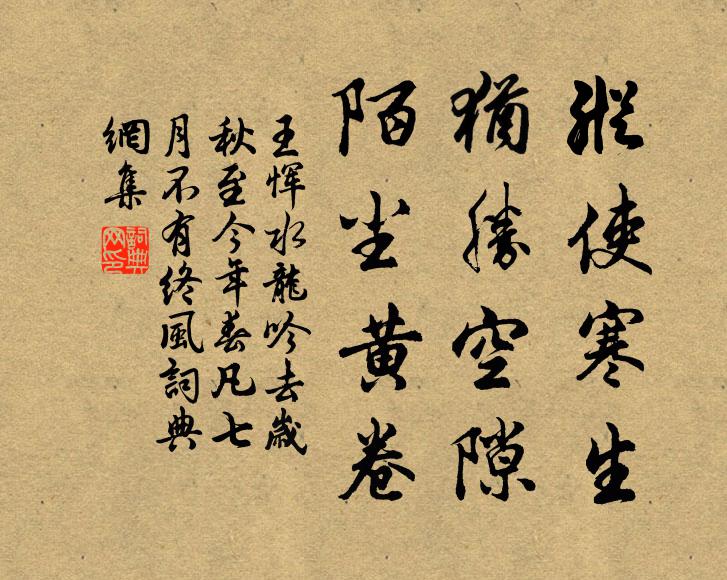 縱使寒生
猶勝空隙
陌尘黄卷
王恽水龍吟去歲
秋至今年春凡七
月不有终風詞典
網集
詞典
网印